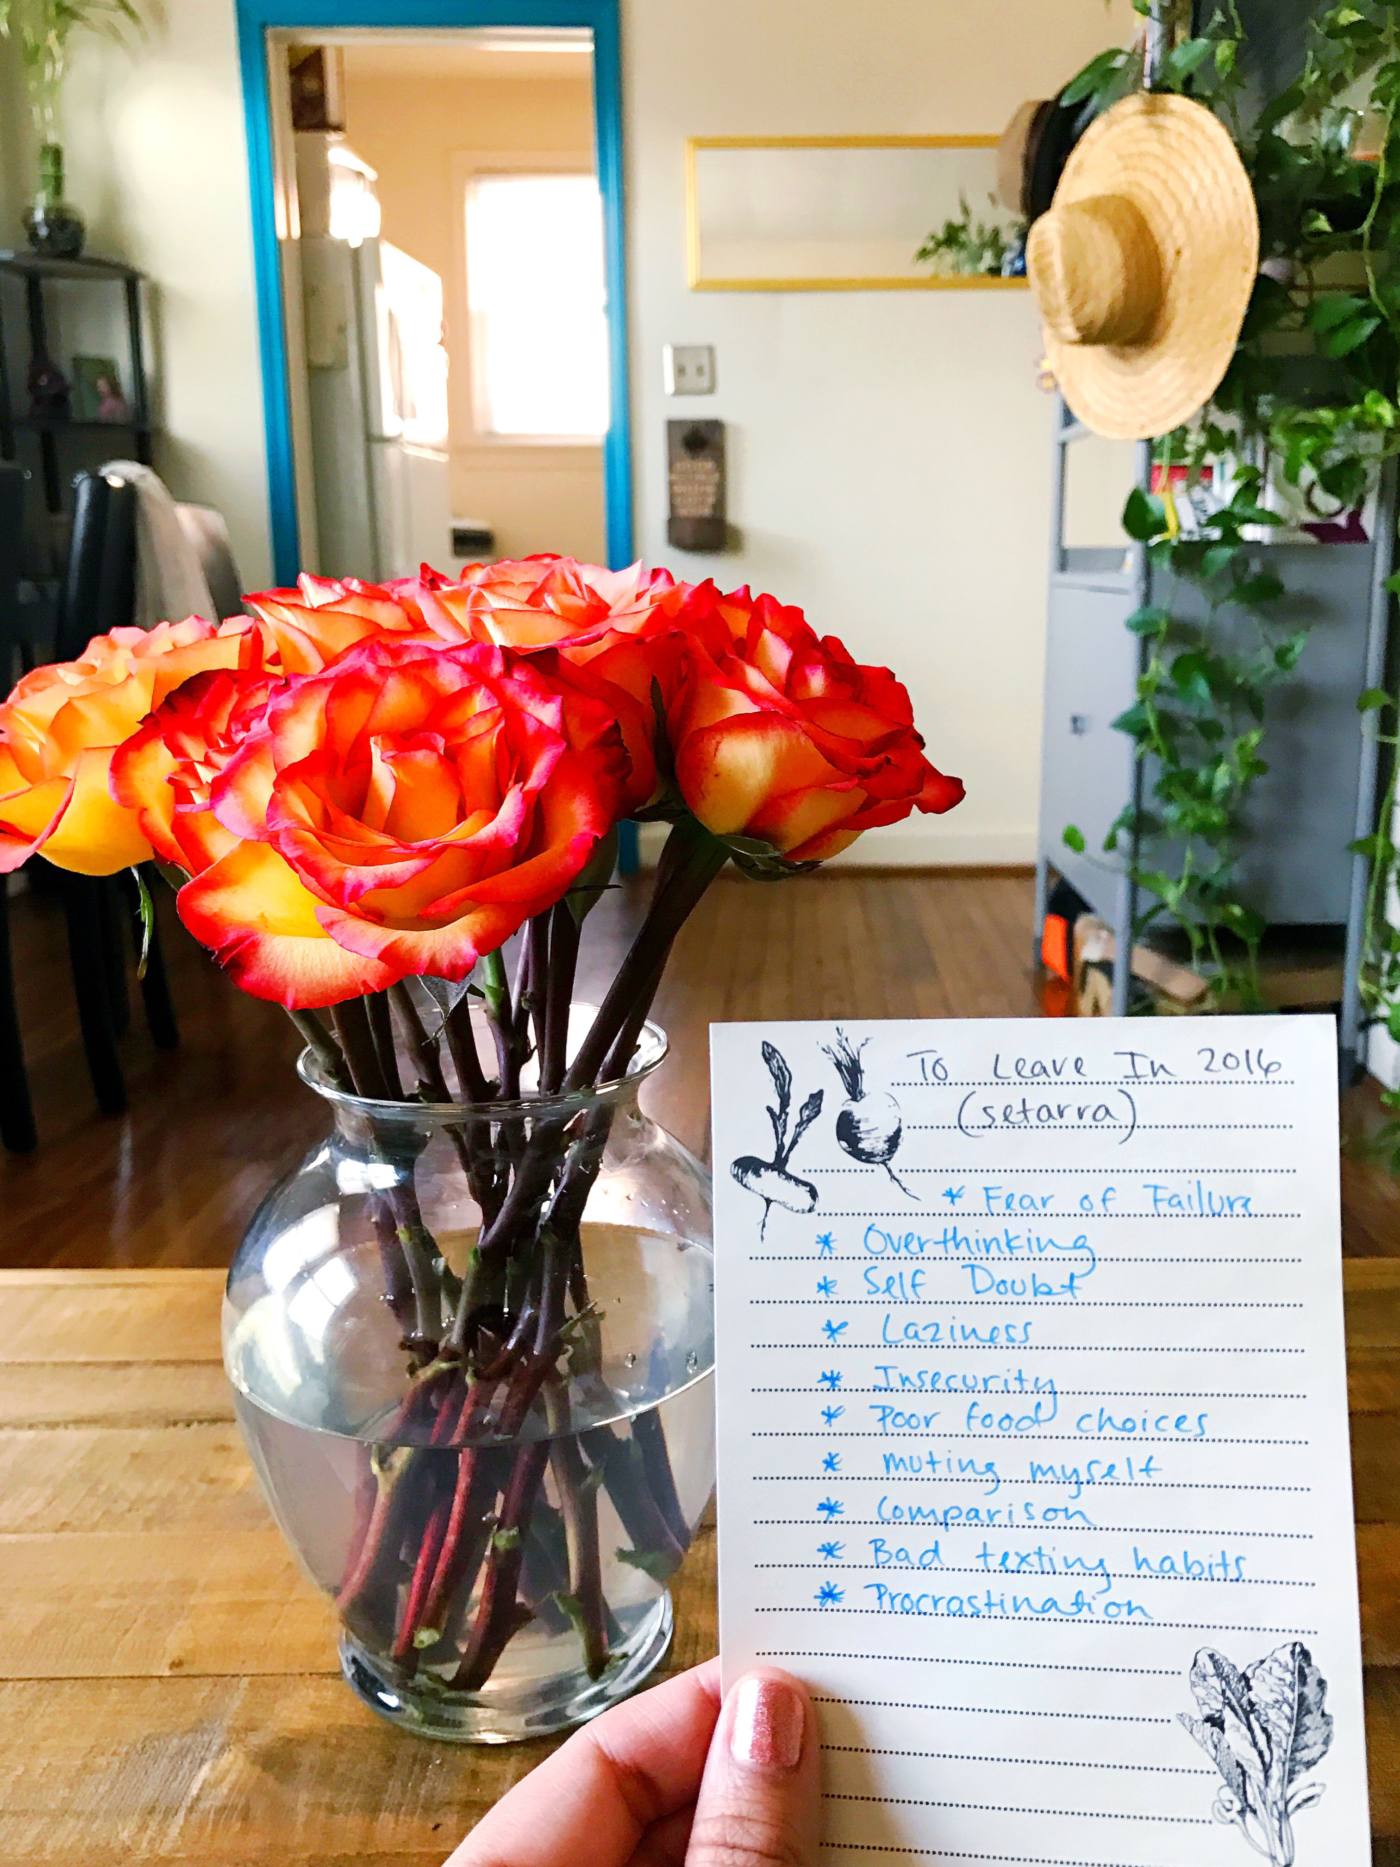 To Leave In 2016
(setarra)
* Fear of Failure
* Overthinking
* Self Doubt
* Laziness
* Insecurity
* Poor food choices
* muting myself
* Comparison
* Bad texting habits
* Procrastination